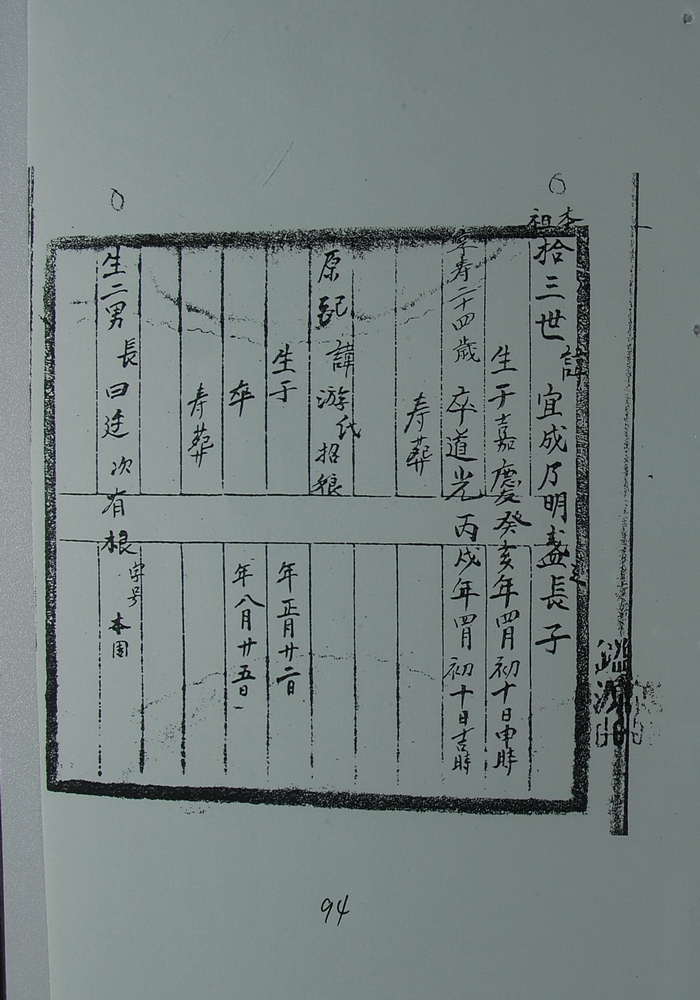 本祖拾三世 諱 宜成乃明盛之長子
生于嘉慶癸亥年四月初十日申時
享寿二十四歲 卒道光丙戌年四月初十日吉時
寿 葬
原配 諱 游氏招娘
生于 年正月廿二日
卒 年八月廿五日
寿 葬
生二男 長曰廷 次有根 字号 本固
94